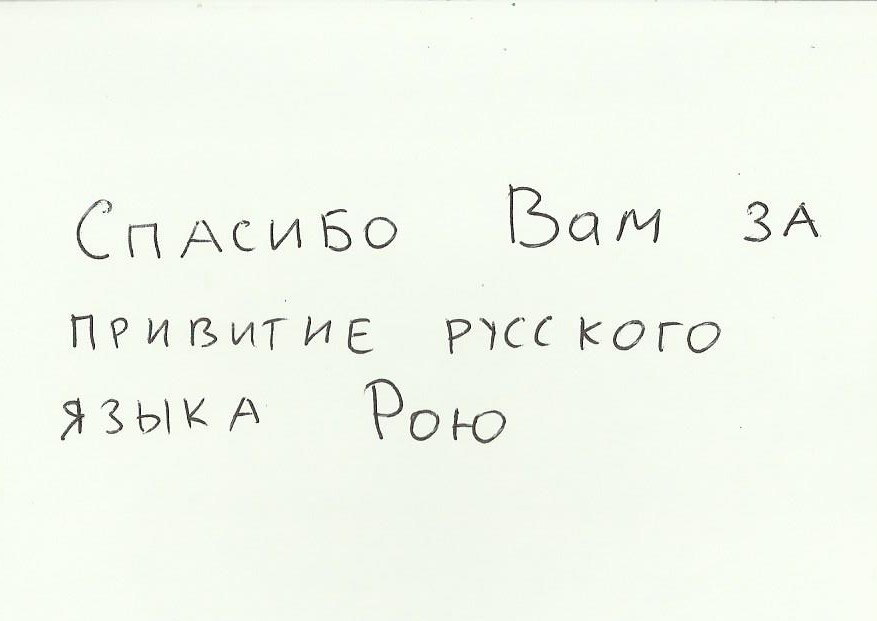 Спасибо Вам за
привитие русского
языка Рою